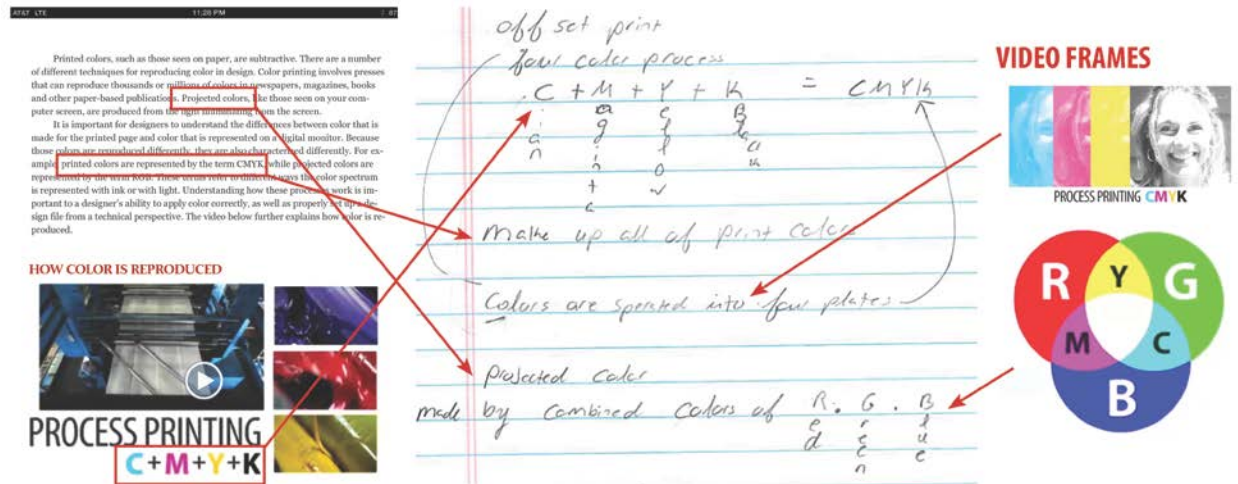 AT&T LTE 11:26 PM 87
Printed colors, such as those seen on paper, are subtractive. There are a number
of different techniques for reproducing color in design. Color printing involves presses
that can reproduce thousands or millions of colors in newspapers, magazines, books
and other paper-based publications. Projected colors, like those seen on your com-
puter screen, are produced from the light illuminating from the screen.
It is important for designers to understand the differences between color that is
made for the printed page and color that is represented on a digital monitor. Because
those colors are reproduced differently, they are also characterized differently. For ex-
ample, printed colors are represented by the term CMYK, while projected colors are
represented by the term RGB. These terms refer to different ways the color spectrum
is represented with ink or with light. Understanding how these processes work is im-
portant to a designer's ability to apply color correctly, as well as properly set up a de-
sign file from a technical perspective. The video below further explains how color is re-
produced.
HOW COLOR IS REPRODUCED
PROCESS PRINTING
C+M+Y+K
off set print
four color process
C + M + Y + K = CMYK
yan agenta ellow Black
Make up all of print colors
Colors are sperated into four plates
Projected color
made by combined colors of R. G. B
ed reen lue
VIDEO FRAMES
PROCESS PRINTING CMYK
R Y G
M C
B